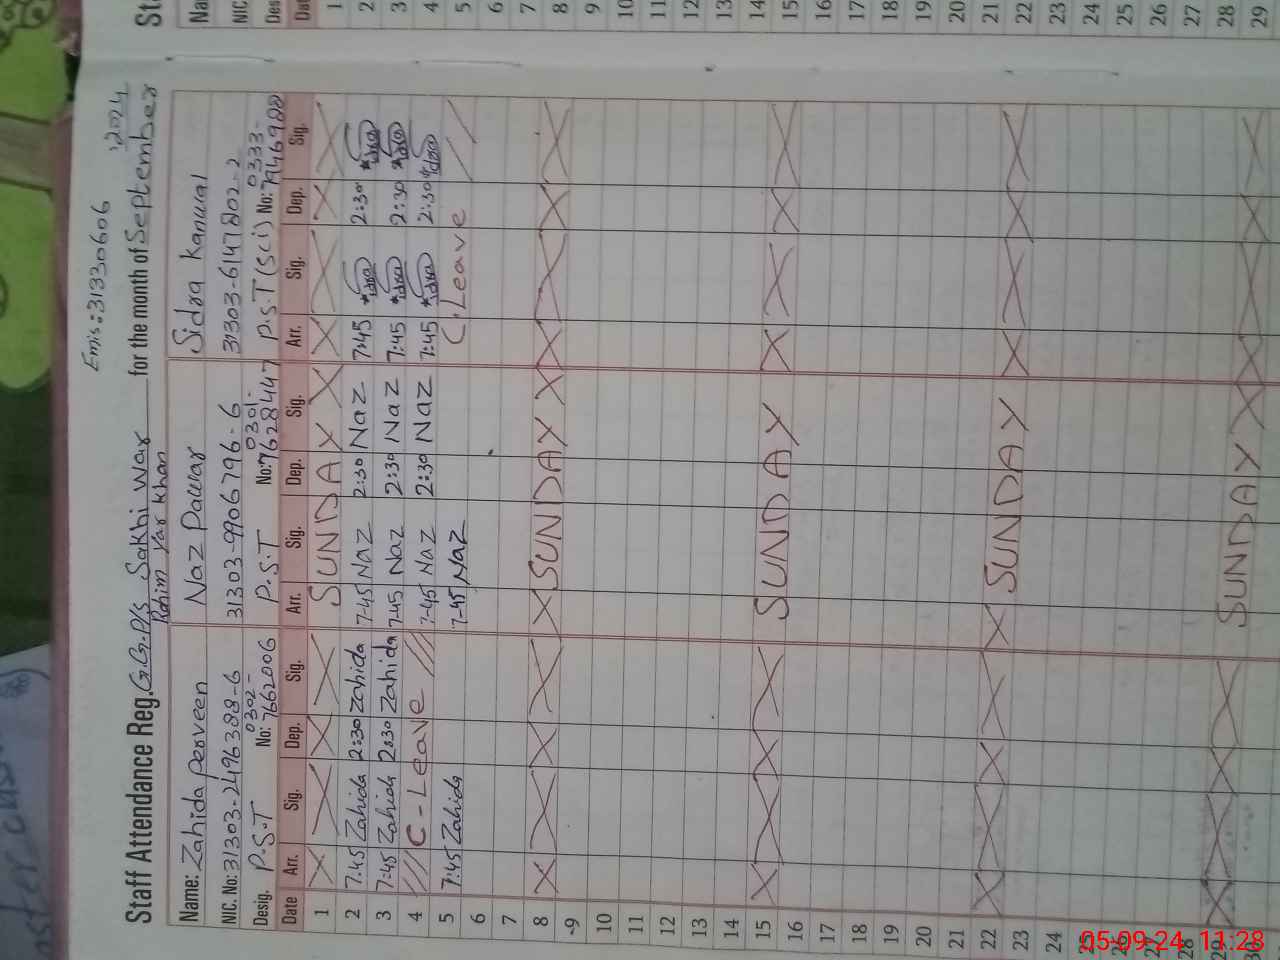 Emis:31330606
Staff Attendance Reg. G.G.P/S Sakhi War for the month of September 2024
Rahim Yar Khan
Name: Zahida Perveen Naz Pawar Sidra Kanwal
NIC. No: 31303-2496388-6 31303-9906796-6 31303-6147802-2
Desig. P.S.T No: 0302-7662006 P.S.T No: 0301-7628447 P.S.T (Sci) No: 0333-7946988
Date Arr. Sig. Dep. Sig. Arr. Sig. Dep. Sig. Arr. Sig. Dep. Sig.
1 SUNDAY
2 7:45 Zahida 2:30 Zahida 7-45 Naz 2:30 Naz 7:45 2:30
3 7:45 Zahida 2:30 Zahida 7-45 Naz 2:30 Naz 7:45 2:30
4 C-Leave 7-45 Naz 2:30 Naz 7:45 2:30
5 7:45 Zahida 7-45 Naz C.Leave
6
7
8 SUNDAY
9
10
11
12
13
14
15 SUNDAY
16
17
18
19
20
21
22 SUNDAY
23
24
25
26
27
28
29 SUNDAY
30
Date
1
2
3
4
5
6
7
8
9
10
11
12
13
14
15
16
17
18
19
20
21
22
23
24
25
26
27
28
29
05-09-24 11:28